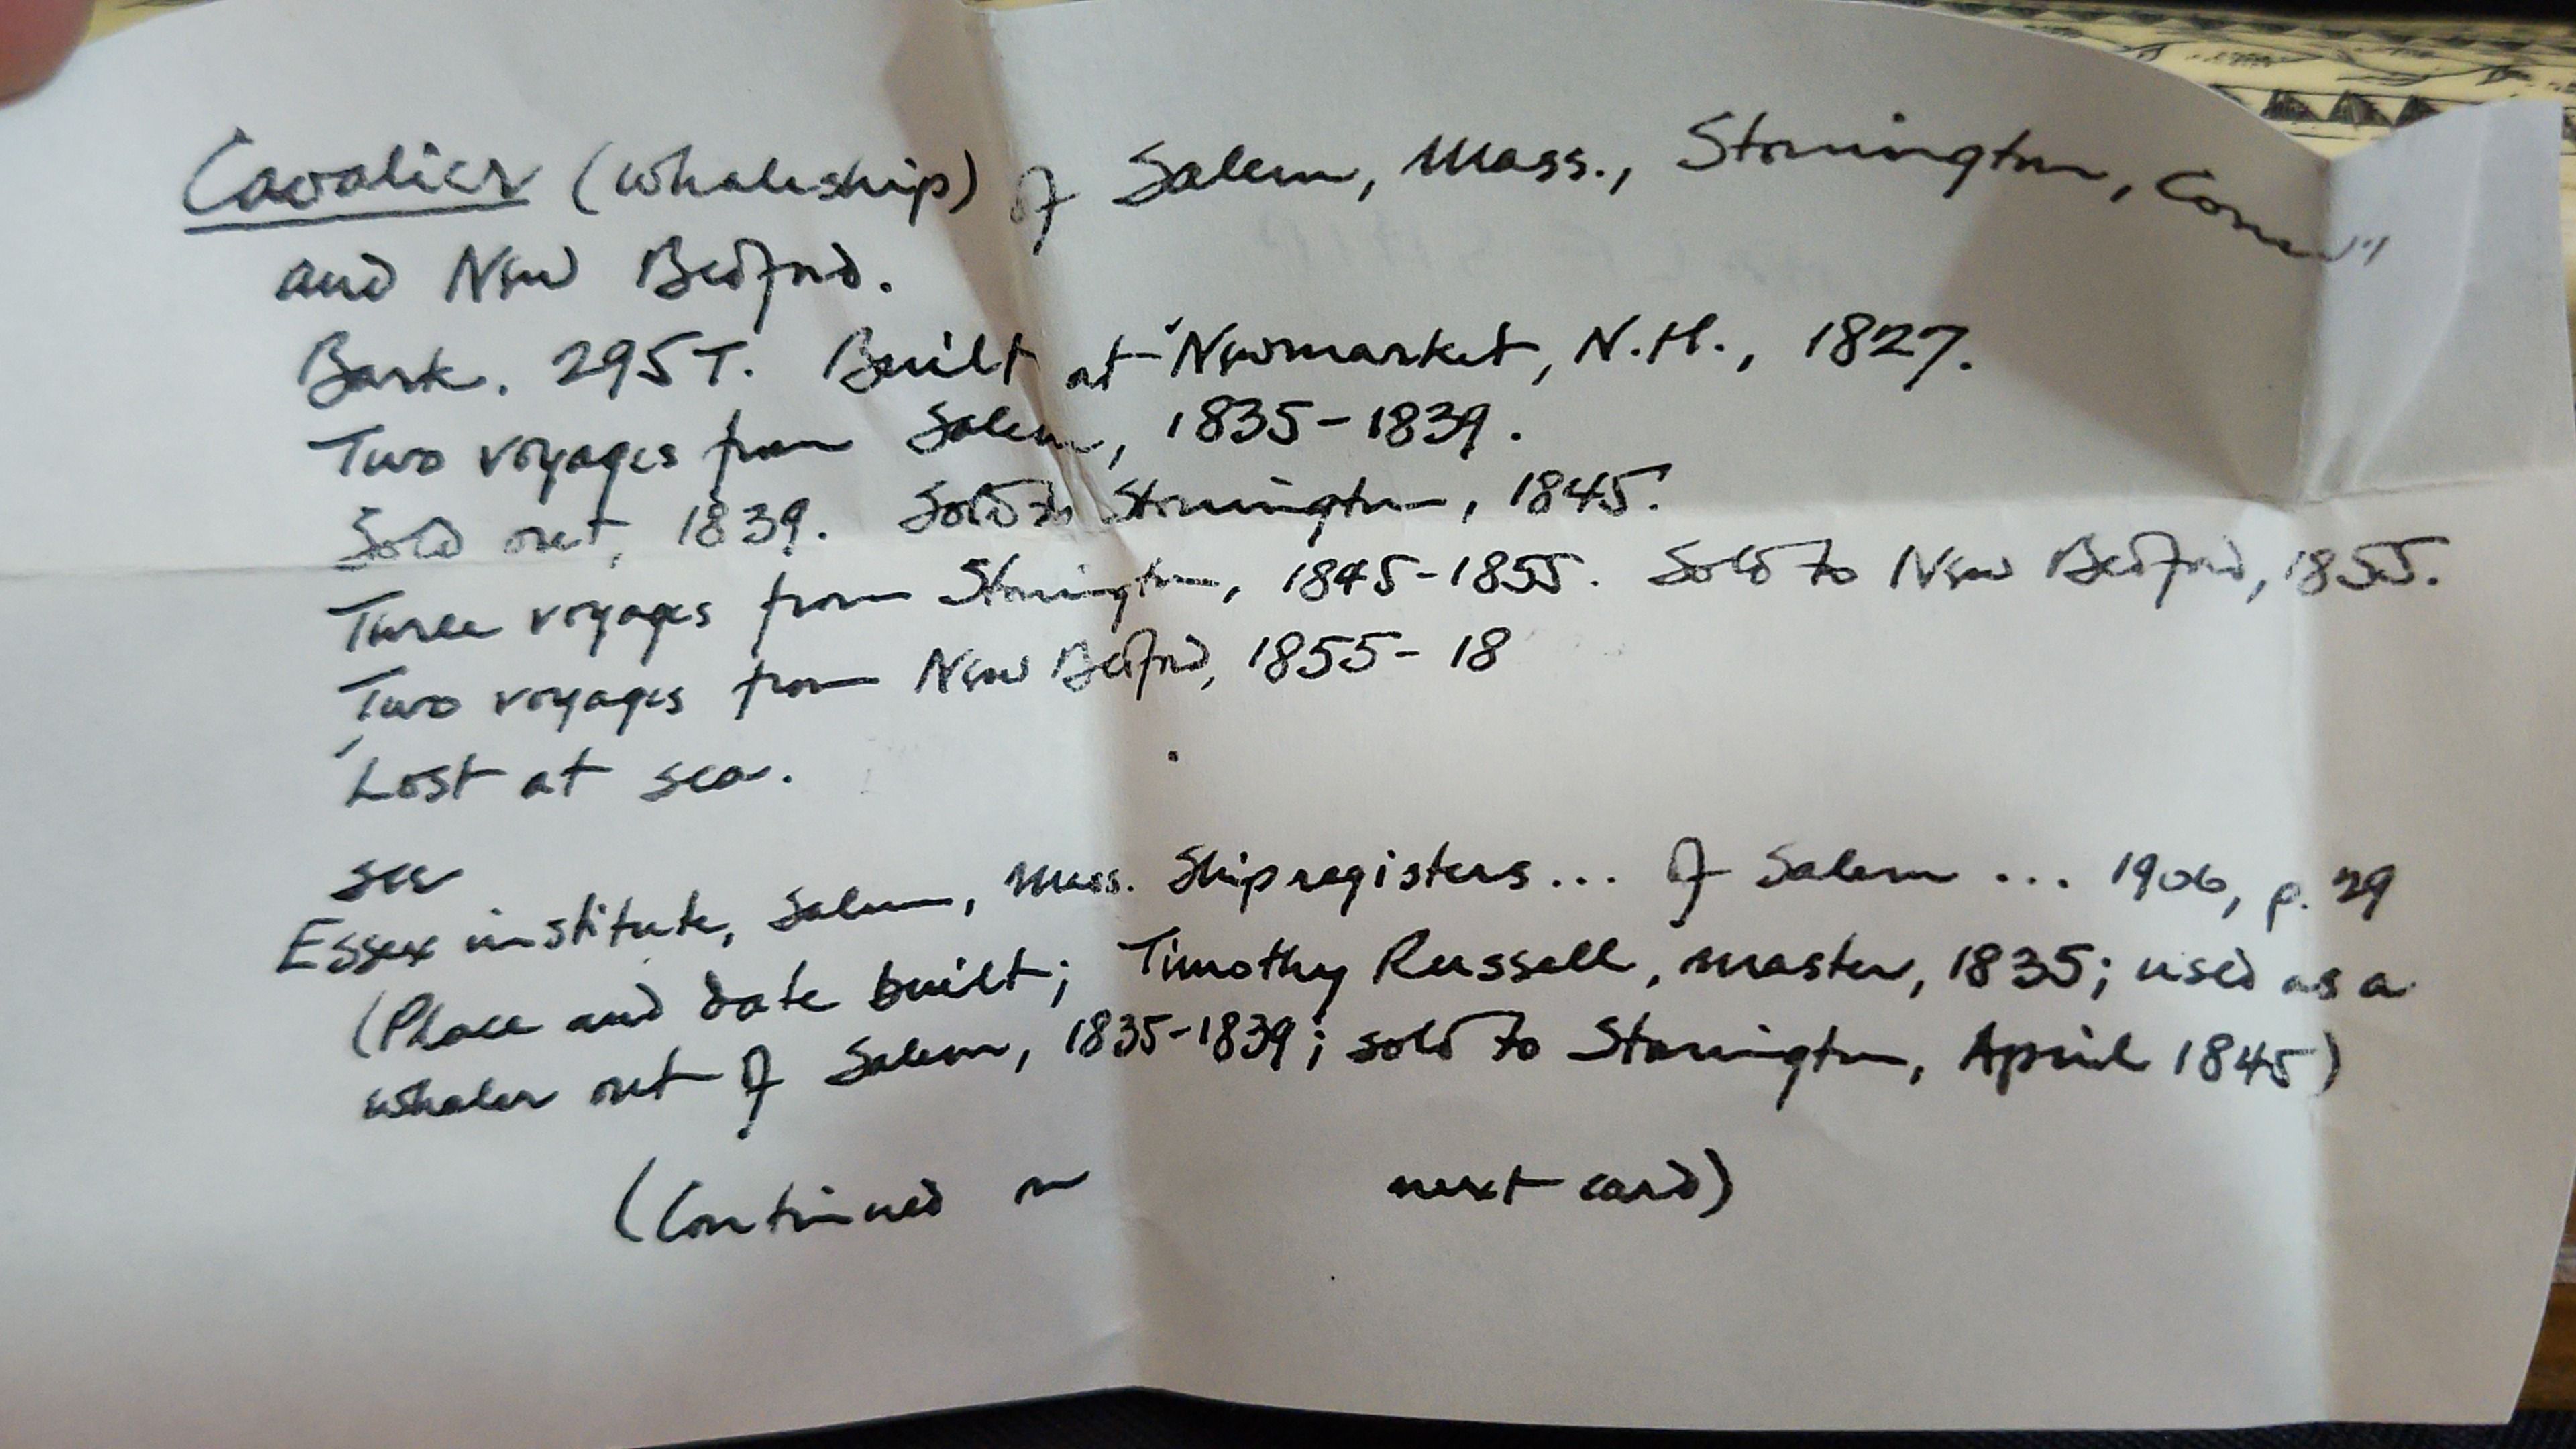 Cavalier (whaleship) of Salem, Mass., Stonington, Conn
and New Bedford.
Bark. 295T. Built at Newmarket, N.H., 1827.
Two voyages from Salem, 1835-1839.
Sold out, 1839. Sold to Stonington, 1845.
Three voyages from Stonington, 1845-1855. Sold to New Bedford, 1855.
Two voyages from New Bedford, 1855- 18
Lost at sea.
see
Essex institute, Salem, Mass. Ship registers... of Salem ... 1906, p. 29
(Place and date built; Timothy Russell, master, 1835; used as a
whaler out of Salem, 1835-1839; sold to Stonington, April 1845)
(Continued on next card)